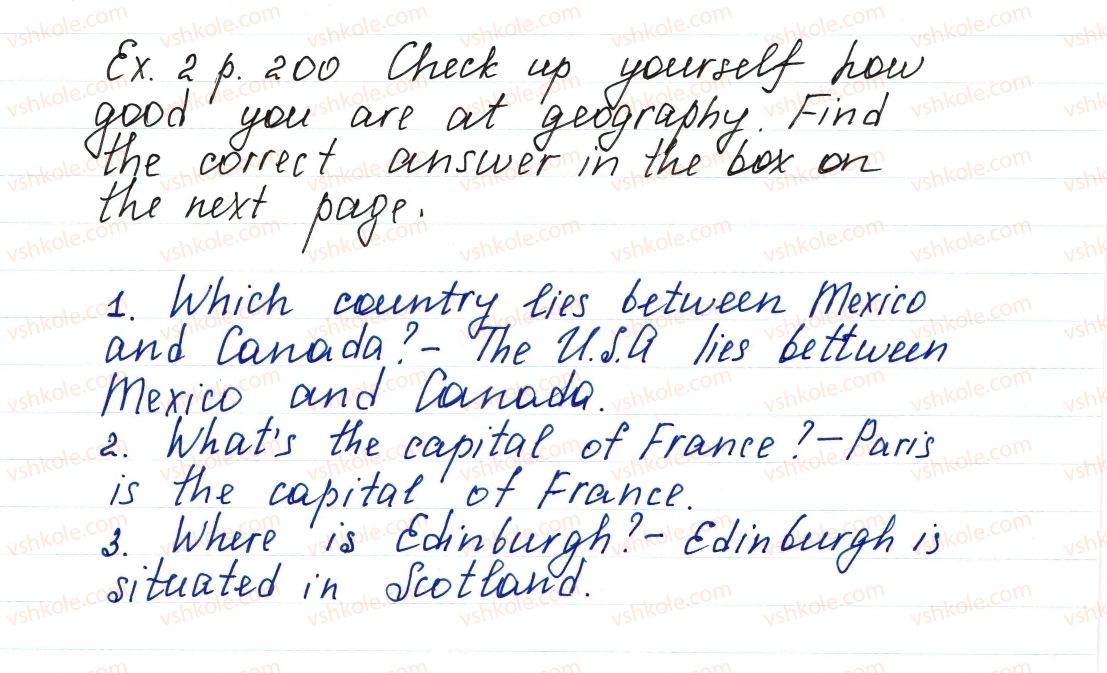 Ex. 2 p. 200 Check up yourself how
good you are at geography. Find
the correct answer in the box on
the next page.
1. Which country lies between Mexico
and Canada? – The U.S.A lies bettween
Mexico and Canada.
2. What's the capital of France? – Paris
is the capital of France.
3. Where is Edinburgh? – Edinburgh is
situated in Scotland.